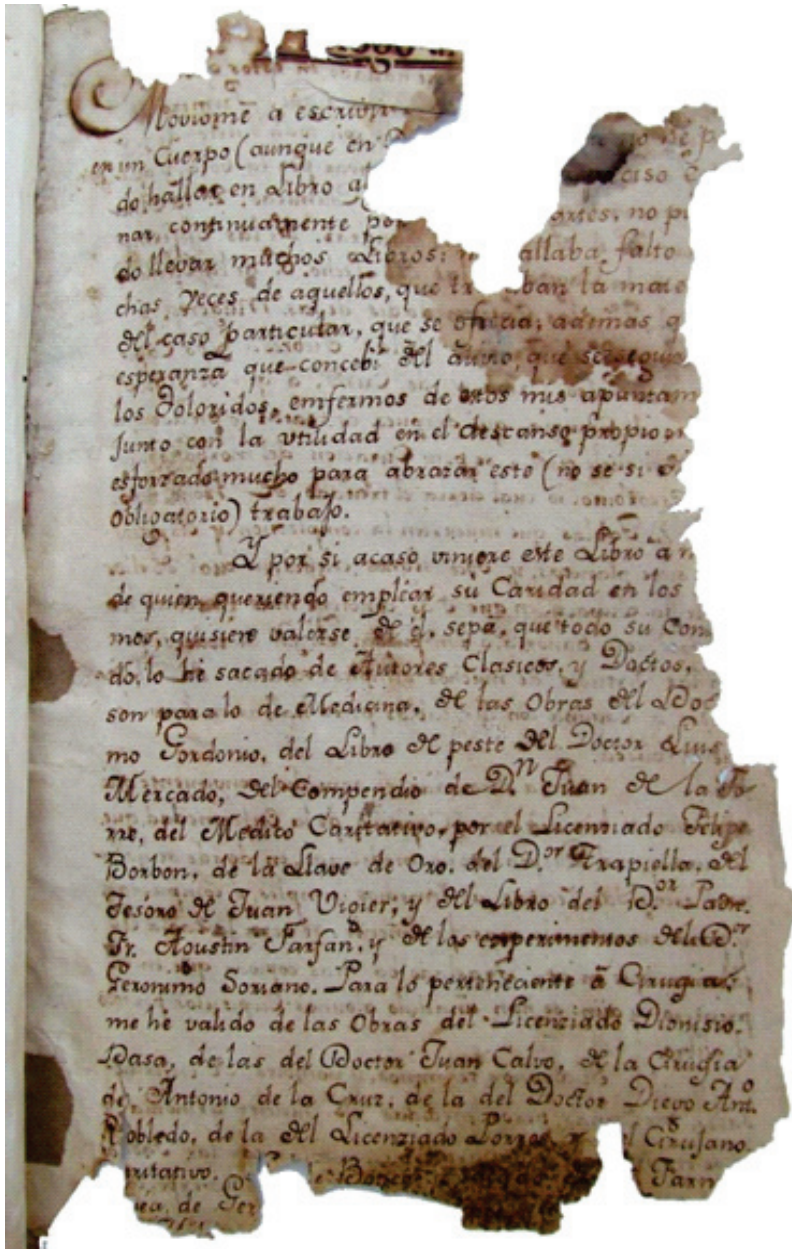 Moviome a escrivir
en un Cuerpo (aunque en
do hallar en Libro al
nar continuamente por artes, no pu
do llevar muchos Libros; allaba falto
chas veces de aquellos, que tr ban la mate
del caso particular, que se ofrecia; ademas q
esperanza que concebi del alivio, que se
los doloridos, emfermos de estos mis apuntam
Junto con la vtilidad en el descanso propio
esforzado mucho para abrazar este (no se si
obligatorio) trabajo.
Y por si acaso viniere este Libro a
de quien queriendo emplear su Caridad en los
mos, quisiere valerse de el, sepa, que todo su Con
do, lo he sacado de Autores Clasicos, y Doctos,
son para lo de Medicina, de las Obras del Doc
mo Gordonio, del Libro de peste del Doctor Luis
Mercado, del Compendio de Dn Juan de la To
rre, del Medico Caritativo, por el Licenziado Felipe
Borbon, de la Llave de Oro, del D.or Arapiella, del
Tesoro de Juan Vigier; y del Libro del D.or Padre
Fr. Agustin Farfan, y de los experimentos del D.r
Geronimo Soriano. Para lo perteneciente à Cirugia,
me he valido de las Obras del Licenziado Dionisio
Dasa, de las del Doctor Juan Calvo, de la Cirugia
de Antonio de la Cruz, de la del Doctor Diego Anto
Robledo, de la del Licenziado Porras, y el Cirujano
ritativo.
de Ger